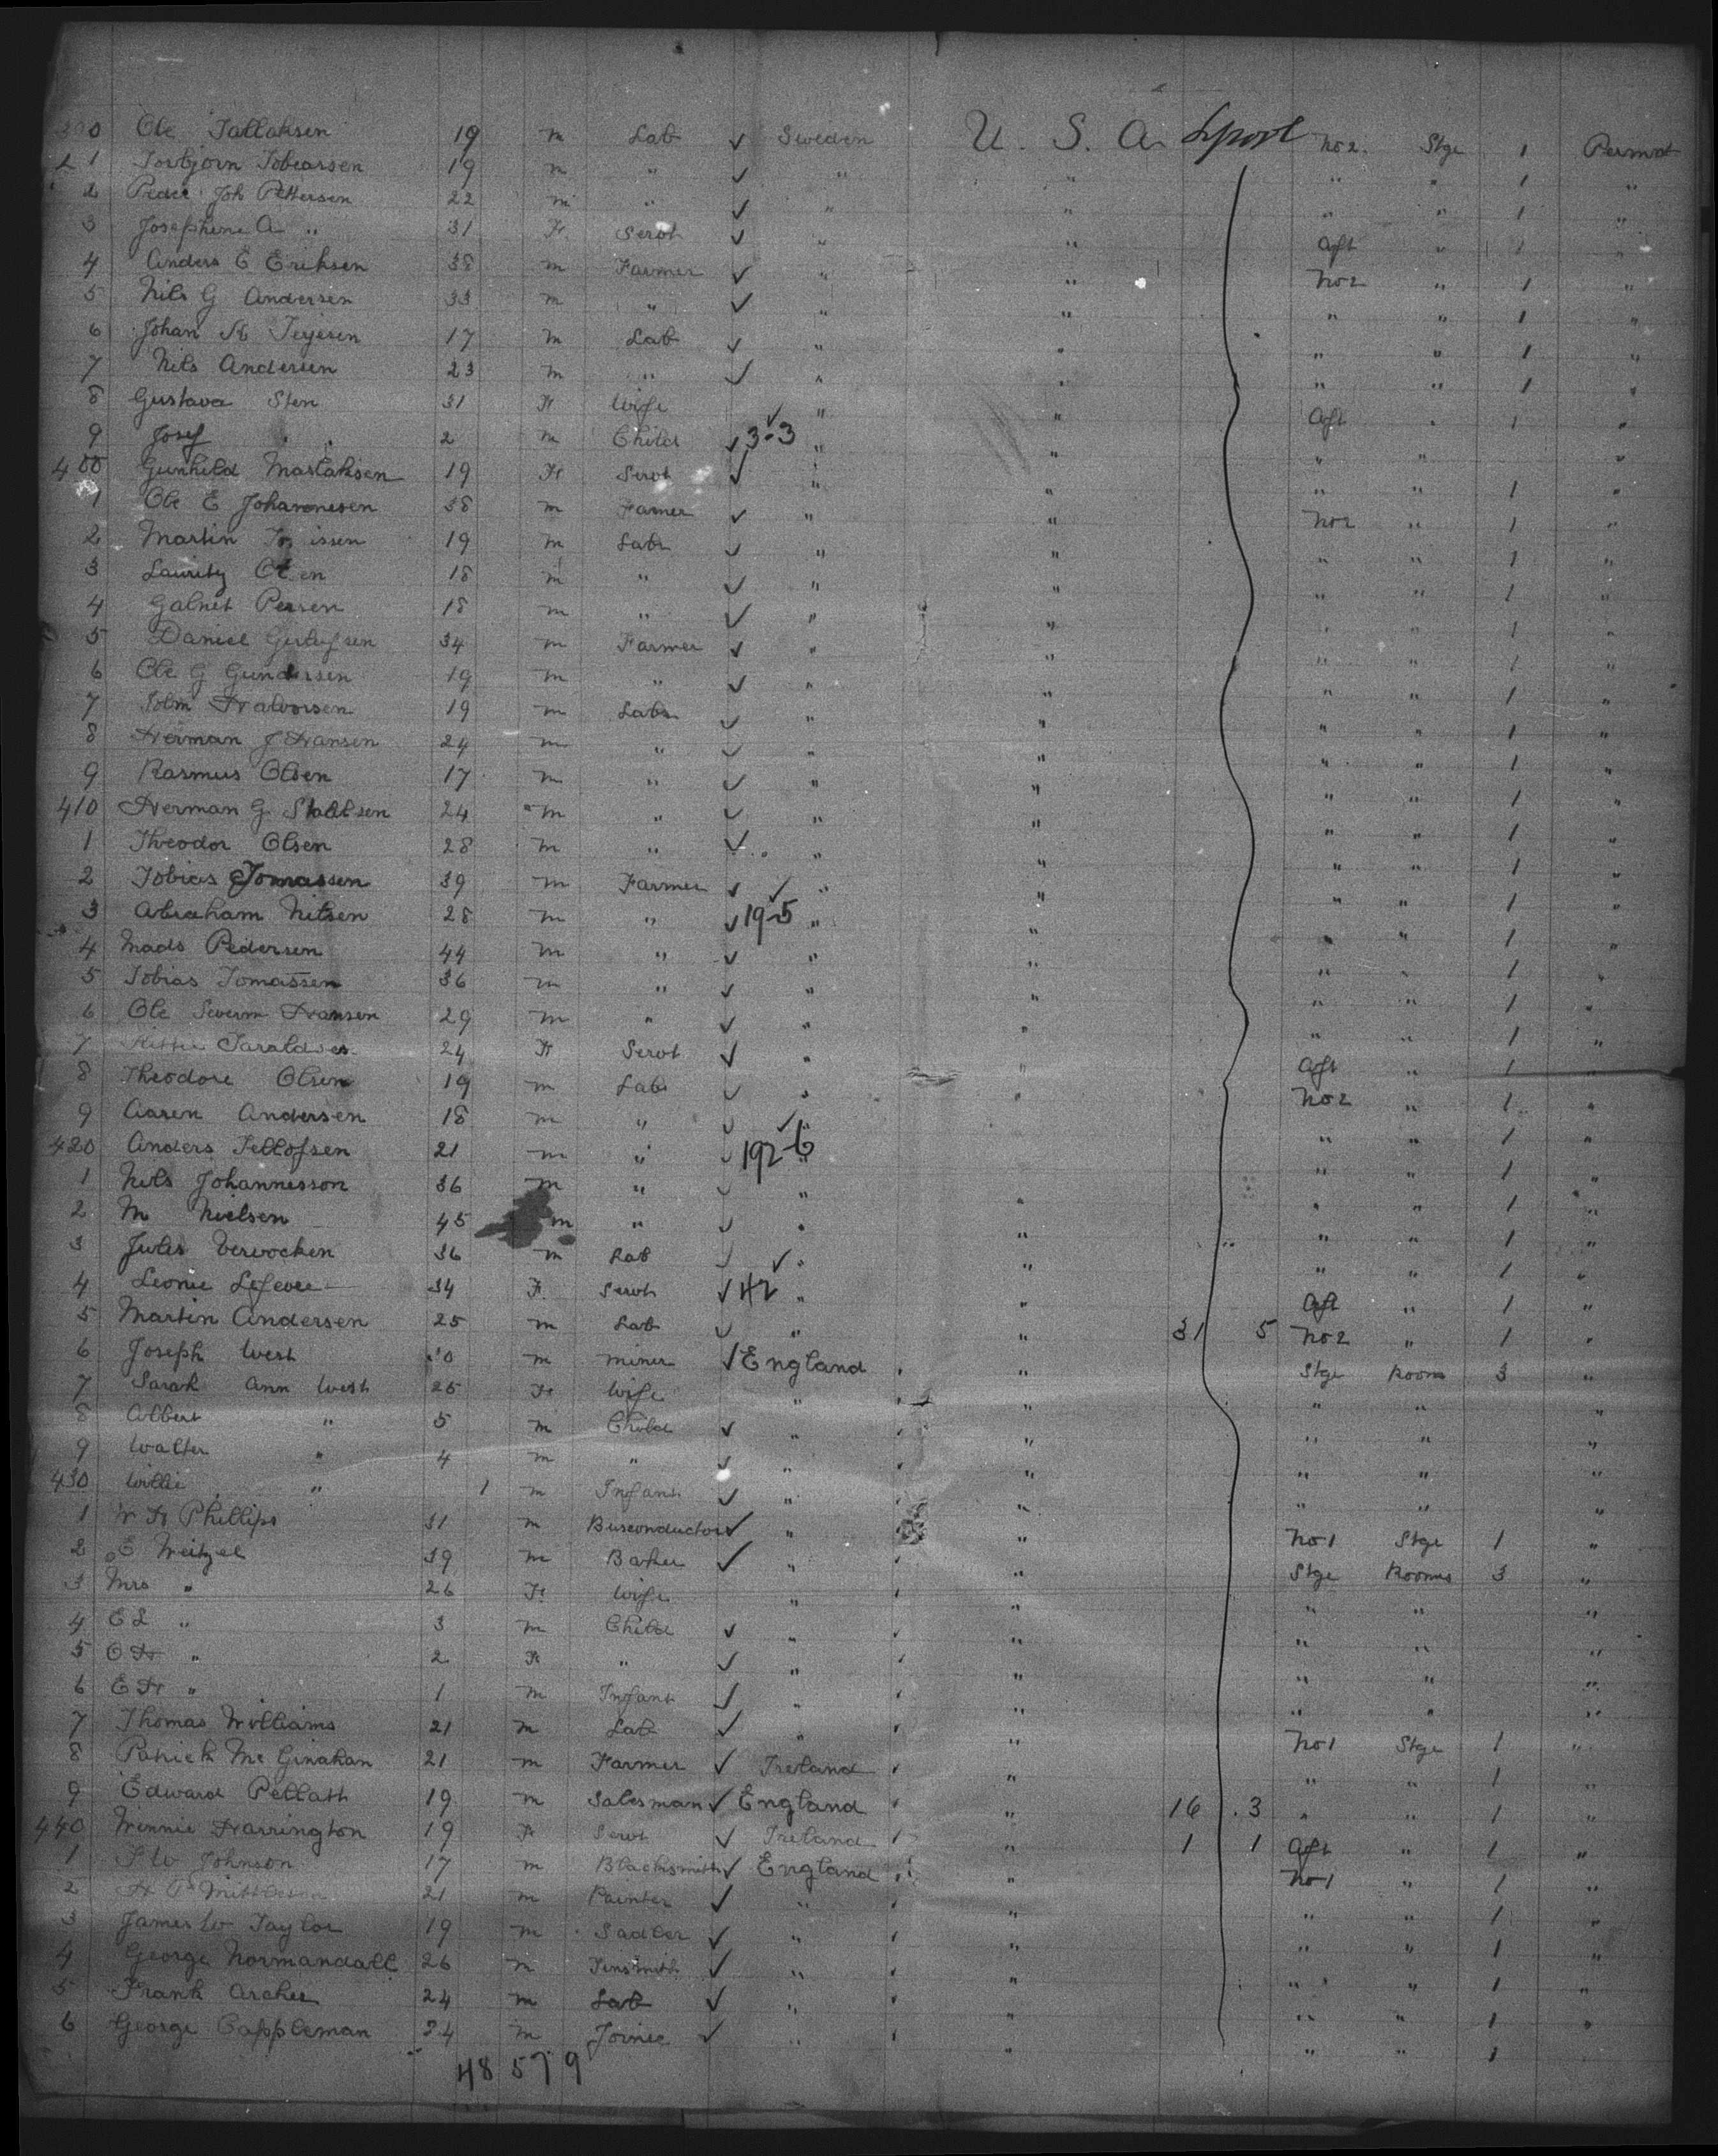 390 Ole Tallaksen 19 m Lab ✓ Sweden U. S. A. Lpool No 2. Stge 1 Permat
1 Torbjorn Tobiarsen 19 m " ✓ " " " " 1 "
2 Peder Joh Pettersen 22 m " ✓ " " " " 1 "
3 Josephine A " 31 F Servt ✓ " " Aft " 1 "
4 Anders E Eriksen 38 m Farmer ✓ " " No 2 " 1 "
5 Nils G Andersen 33 m " ✓ " " " " 1 "
6 Johan K Terjesen 17 m Lab ✓ " " " " 1 "
7 Nils Andersen 23 m " ✓ " " " " 1 "
8 Gustava Sten 31 F Wife " " Aft " 1 "
9 Josef " 2 m Child ✓ 3-3 " " " " "
400 Gunhild Maslaksen 19 F Servt ✓ " " " " 1 "
1 Ole E Johannesen 38 m Farmer ✓ " " No 2 " 1 "
2 Martin 19 m Labr ✓ " " " " 1 "
3 Lauritz Olsen 18 m " ✓ " " " " 1 "
4 Galnet Persen 18 m " ✓ " " " " 1 "
5 Daniel Gustufsen 34 m Farmer ✓ " " " " 1 "
6 Ole G Gundersen 19 m " ✓ " " " " 1 "
7 Tolm Halvorsen 19 m Labr ✓ " " " " 1 "
8 Herman J Hansen 24 m " ✓ " " " " 1 "
9 Rasmus Olsen 17 m " ✓ " " " " 1 "
410 Herman G Stallsen 24 m " ✓ " " " " 1 "
1 Theodor Olsen 28 m " ✓ " " " " 1 "
2 Tobias Tomassen 39 m Farmer ✓ " " " " 1 "
3 Abraham Nilsen 28 m " ✓ 19-5 " " " " 1 "
4 Mads Pedersen 44 m " ✓ " " " " 1 "
5 Tobias Tomassen 36 m " ✓ " " " " 1 "
6 Ole Severin Hansen 29 m " ✓ " " " " 1 "
7 Taraldses 24 F Servt ✓ " " Aft " 1 "
8 Theodore Olsen 19 m Labr ✓ " " No 2 " 1 "
9 Aaren Andersen 18 m " ✓ " " " " 1 "
420 Anders Tellofsen 21 m " ✓ 192-6 " " " " 1 "
1 Nels Johannesson 36 m " ✓ " " " " 1 "
2 M Nielsen 45 m " ✓ " " " " 1 "
3 Jules Vervocken 36 m Lab ✓ " " " " 1 "
4 Leonie Lefevre 34 F. Servt ✓ 42 " " Aft " 1 "
5 Martin Andersen 25 m Lab ✓ " " 31 5 No 2 " 1 "
6 Joseph West 30 m Miner ✓ England " Stge Rooms 3 "
7 Sarah Ann West 25 F Wife " " " " "
8 Albert " 5 m Child ✓ " " " " "
9 Walter " 4 m " ✓ " " " " "
430 Willie " 1 m Infant ✓ " " " " "
1 W H Phillips 31 m Busconductor ✓ " " No 1 Stge 1 "
2 E Weitzel 39 m Baker ✓ " " Stge Rooms 3 "
3 Mrs " 26 F. Wife " " " " "
4 E L " 3 m Child ✓ " " " " "
5 O H " 2 F " ✓ " " " " "
6 E H " 1 m Infant ✓ " " " " "
7 Thomas Williams 21 m Lab ✓ " " No 1 Stge 1 "
8 Patrick Mc Ginahan 21 m Farmer ✓ Ireland " " " 1 "
9 Edward Pellatt 19 m Salesman ✓ England " 16 . 3 " " 1 "
440 Winnie Harrington 19 F Servt ✓ Ireland " 1 1 Aft " 1 "
1 T W Johnson 17 m Blacksmith ✓ England " No 1 " 1 "
2 H P Mittleton 21 m Painter ✓ " " " " 1 "
3 James W Taylor 19 m Sadler ✓ " " " " 1 "
4 George Normandall 26 m Tinsmith ✓ " " " " 1 "
5 Frank Archer 24 m Lab ✓ " " " " 1 "
6 George Cappleman 24 m Joiner ✓ " " " " 1
48 5 7 9